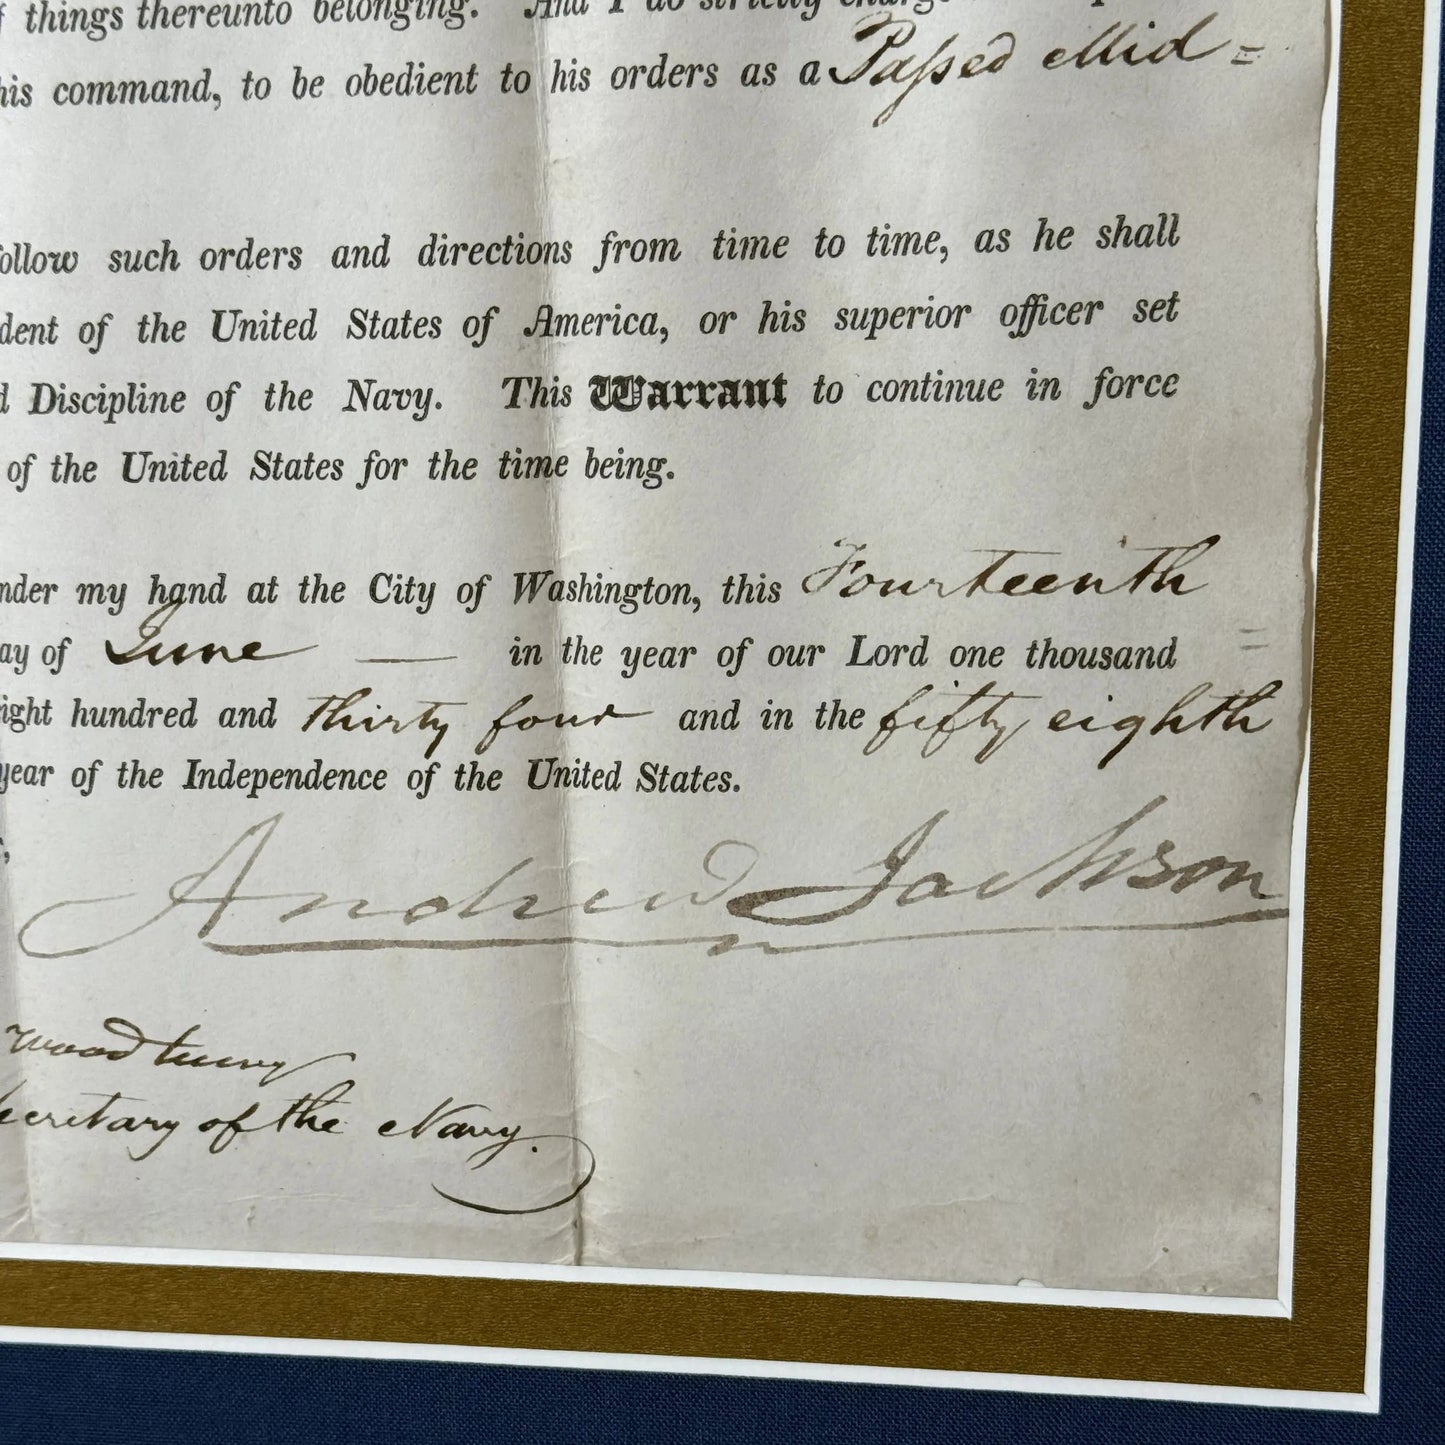 things thereunto belonging. And I do strictly charge
his command, to be obedient to his orders as a Passed Mid=
follow such orders and directions from time to time, as he shall
dent of the United States of America, or his superior officer set
d Discipline of the Navy. This Warrant to continue in force
of the United States for the time being.
nder my hand at the City of Washington, this Fourteenth
ay of June — in the year of our Lord one thousand =
ight hundred and thirty four and in the fifty eighth
year of the Independence of the United States.
Andrew Jackson
Woodbury
Secretary of the Navy.